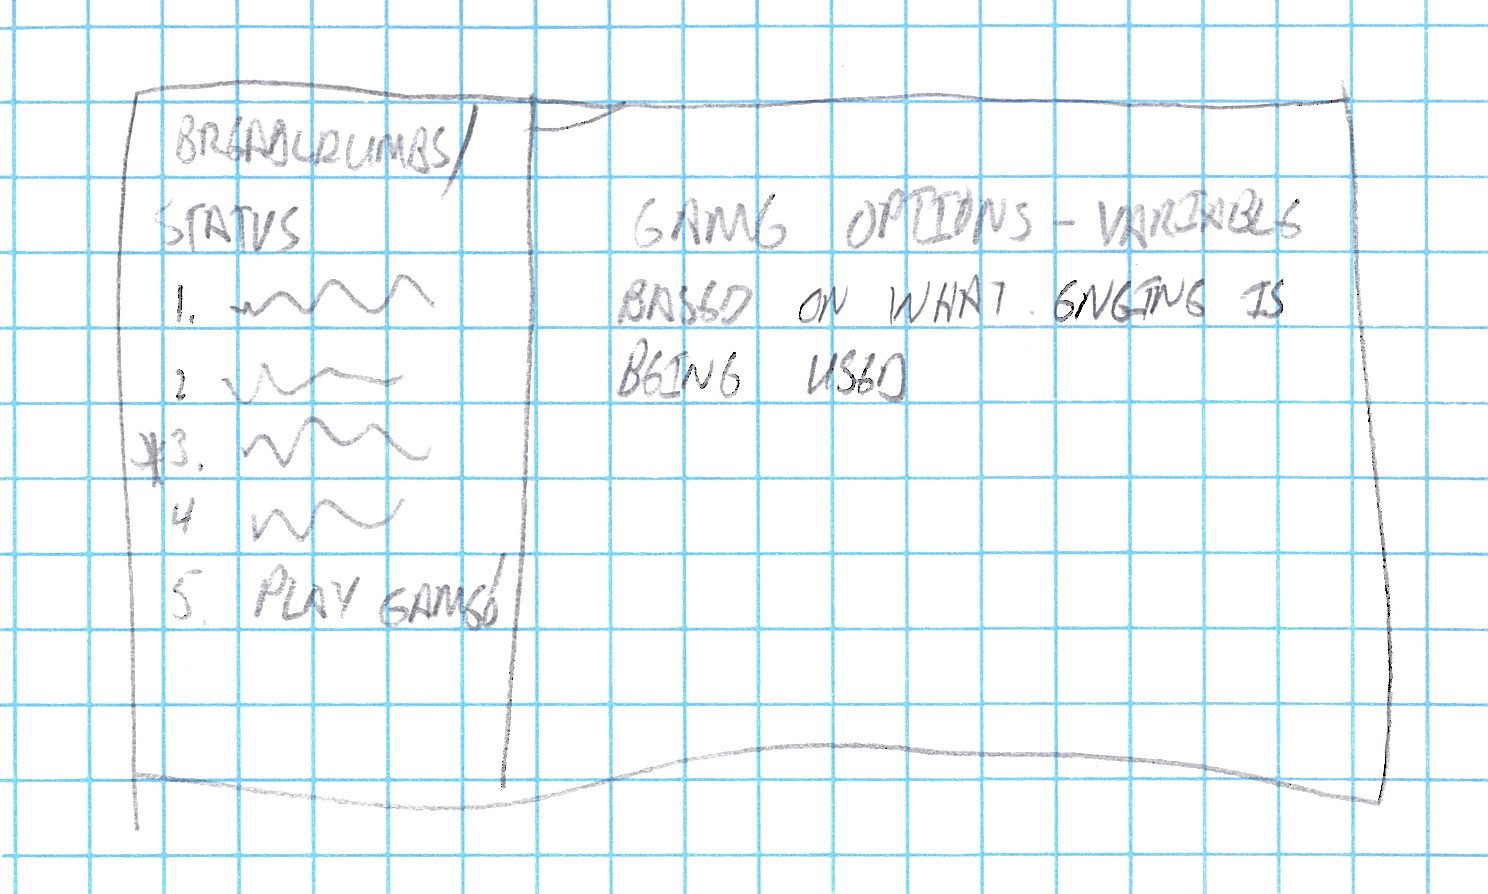 BREADCRUMBS/
STATUS
1.
2
*3.
4
5. PLAY GAME!
GAME OPTIONS - VARIABLE
BASED ON WHAT ENGINE IS
BEING USED